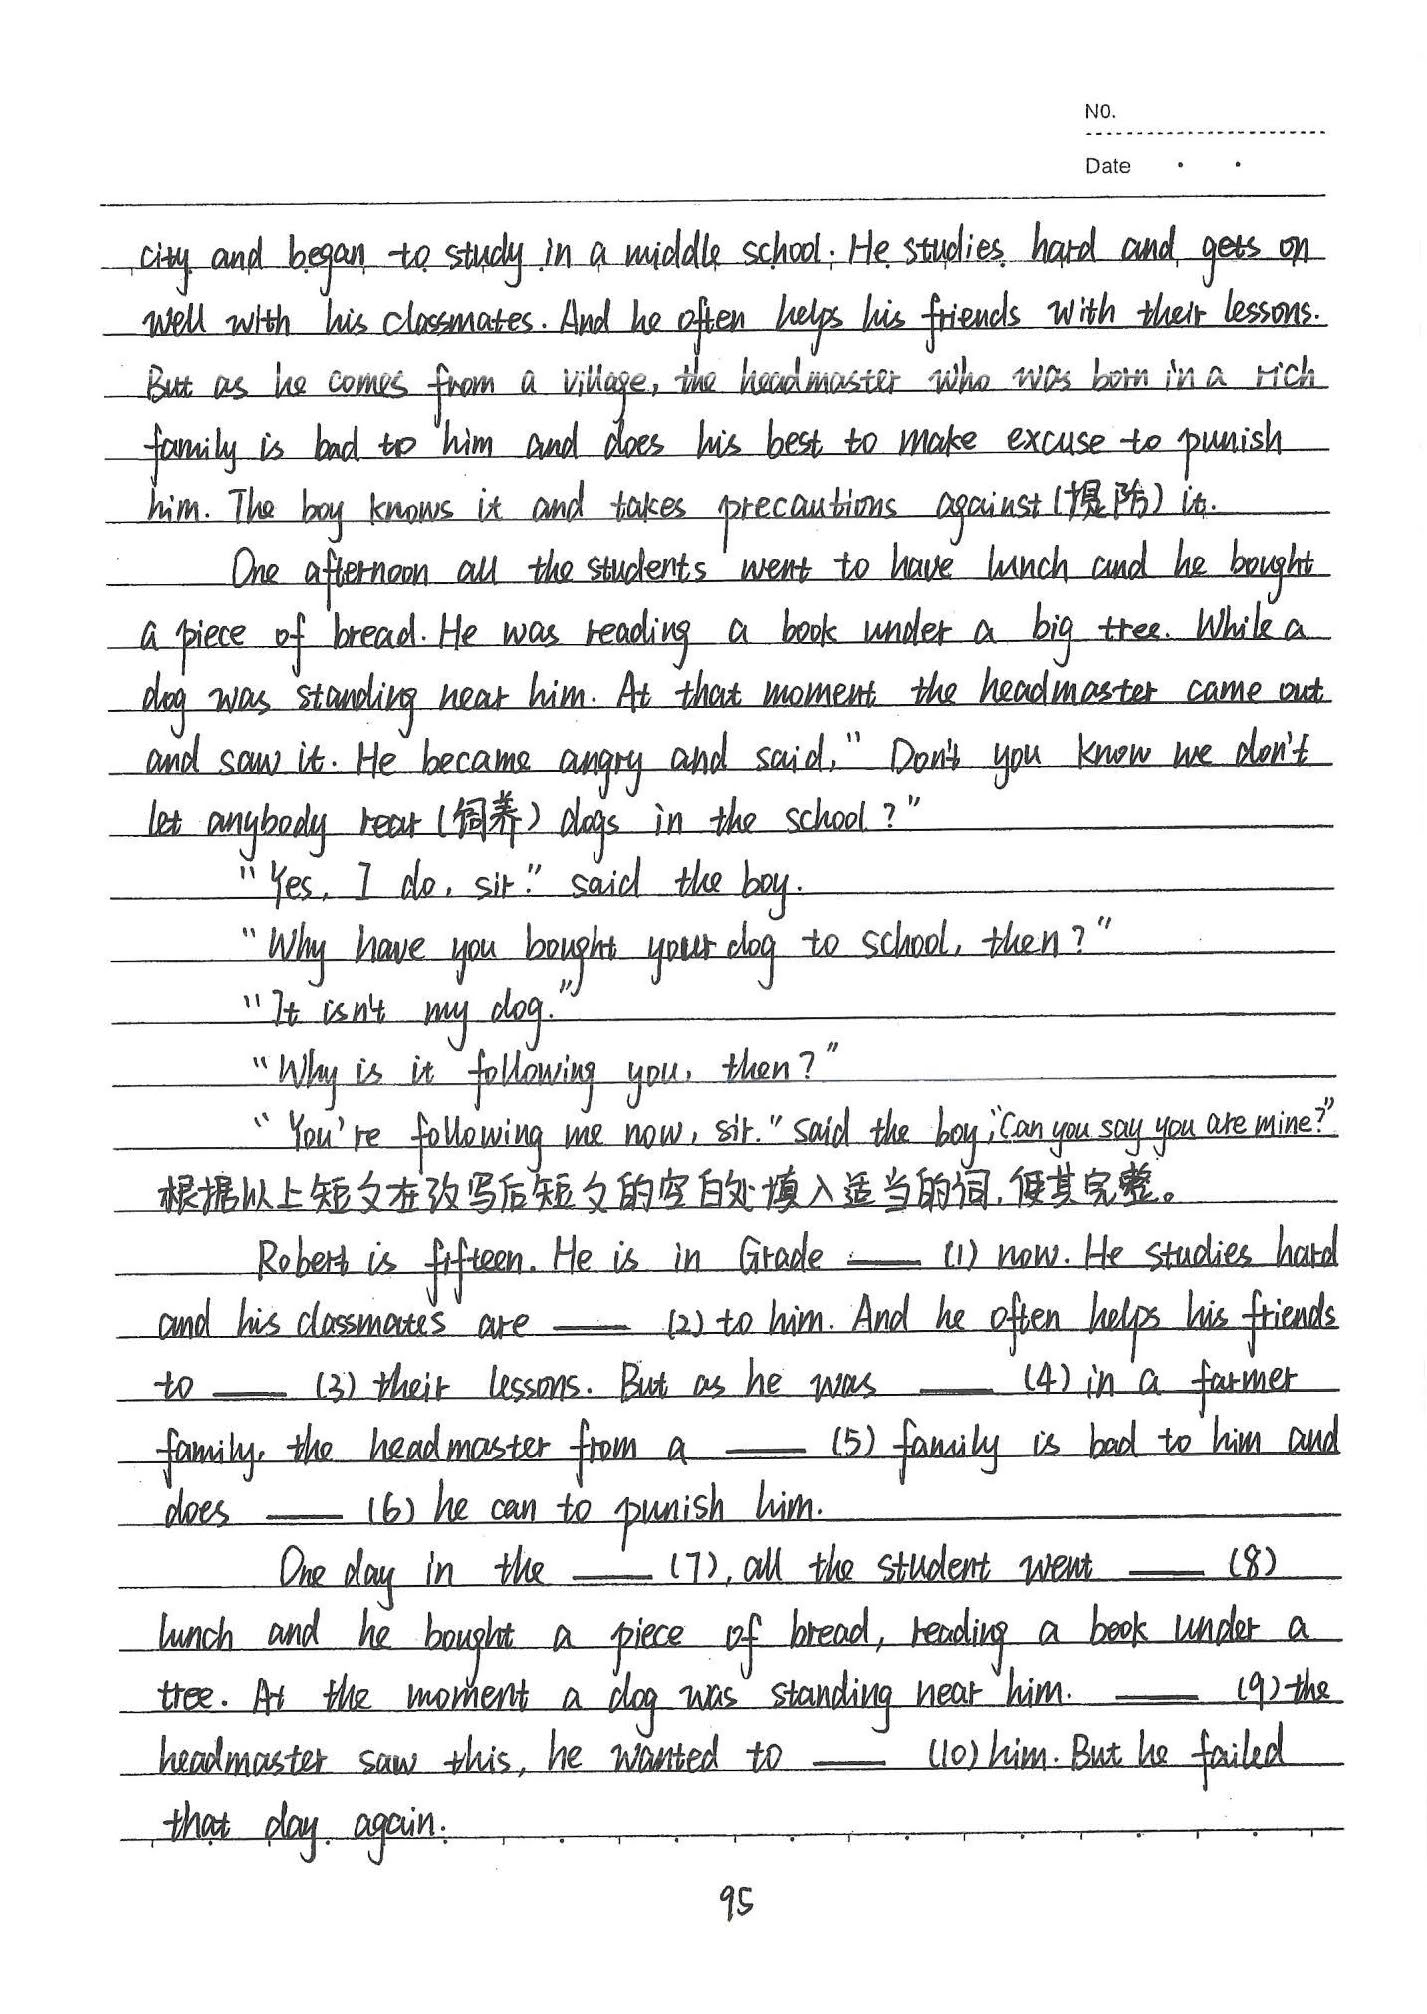 NO.
Date
city and began to study in a middle school. He studies hard and gets on
well with his classmates. And he often helps his friends with their lessons.
But as he comes from a village, the headmaster who was born in a rich
family is bad to him and does his best to make excuse to punish
him. The boy knows it and takes precautions against (提防) it.
One afternoon all the students went to have lunch and he bought
a piece of bread. He was reading a book under a big tree. While a
dog was standing near him. At that moment the headmaster came out
and saw it. He became angry and said, "Don't you know we don't
let anybody rear (饲养) dogs in the school?"
"Yes, I do, sir." said the boy.
"Why have you bought your dog to school, then?"
"It isn't my dog."
"Why is it following you, then?"
"You're following me now, sir." said the boy, "Can you say you are mine?"
根据以上短文在改写后短文的空白处填入适当的词,使其完整。
Robert is fifteen. He is in Grade ___ (1) now. He studies hard
and his classmates are ___ (2) to him. And he often helps his friends
to ___ (3) their lessons. But as he was ___ (4) in a farmer
family, the headmaster from a ___ (5) family is bad to him and
does ___ (6) he can to punish him.
One day in the ___ (7), all the student went ___ (8)
lunch and he bought a piece of bread, reading a book under a
tree. At the moment a dog was standing near him. ___ (9) the
headmaster saw this, he wanted to ___ (10) him. But he failed
that day again.
95